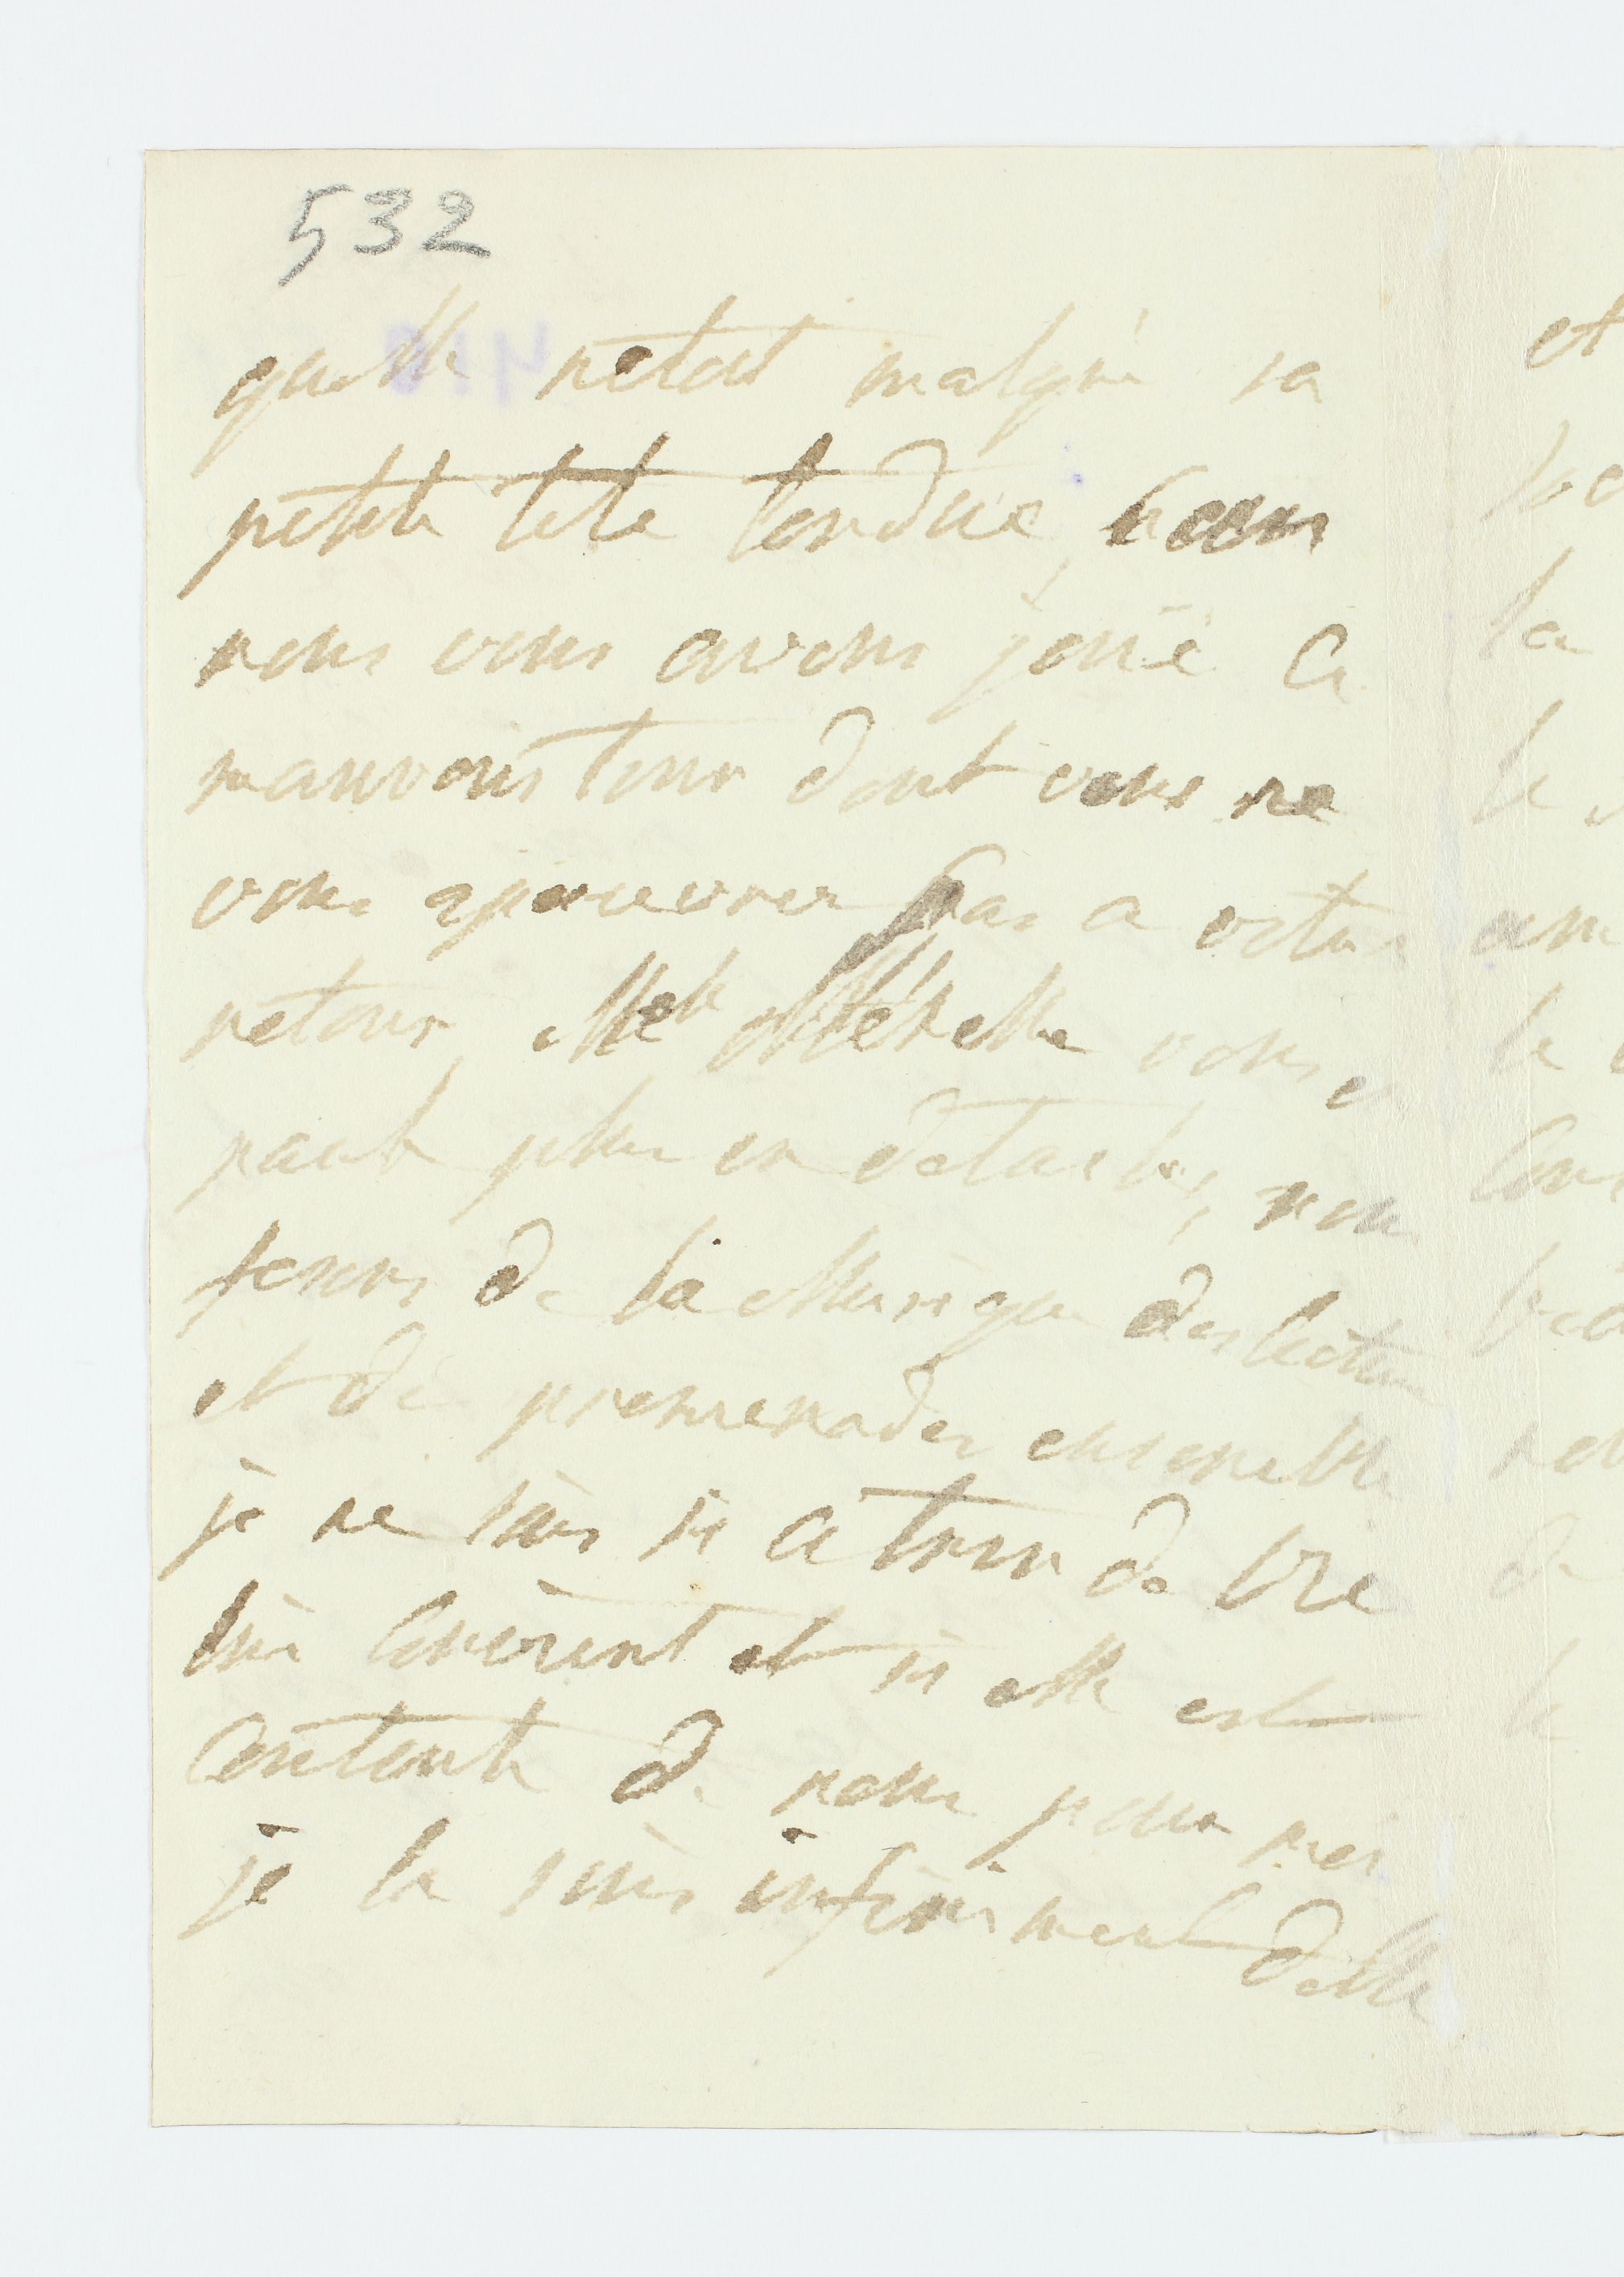 532
quelle netoit malgré sa
petite tete tondue, nous
nous vous avons joué ce
mauvais tour dont vous ne
vous apercevrez pas a votre
retour, Melle vous e
parle plus en details, nous
fesons de la Musique des lectures
et des promenades ensemble
je ne sais si a tour de bre
lui convient et si elle est
contente de nous pour moi
je la suis infiniment delle
et
la
le
le
de
le